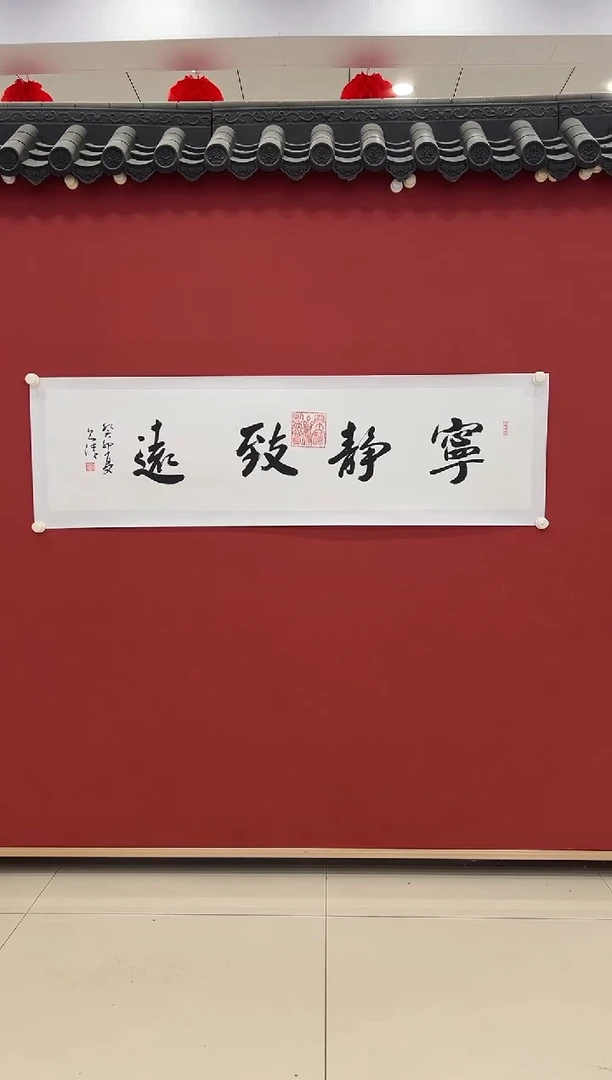 寧靜致遠
癸卯夏